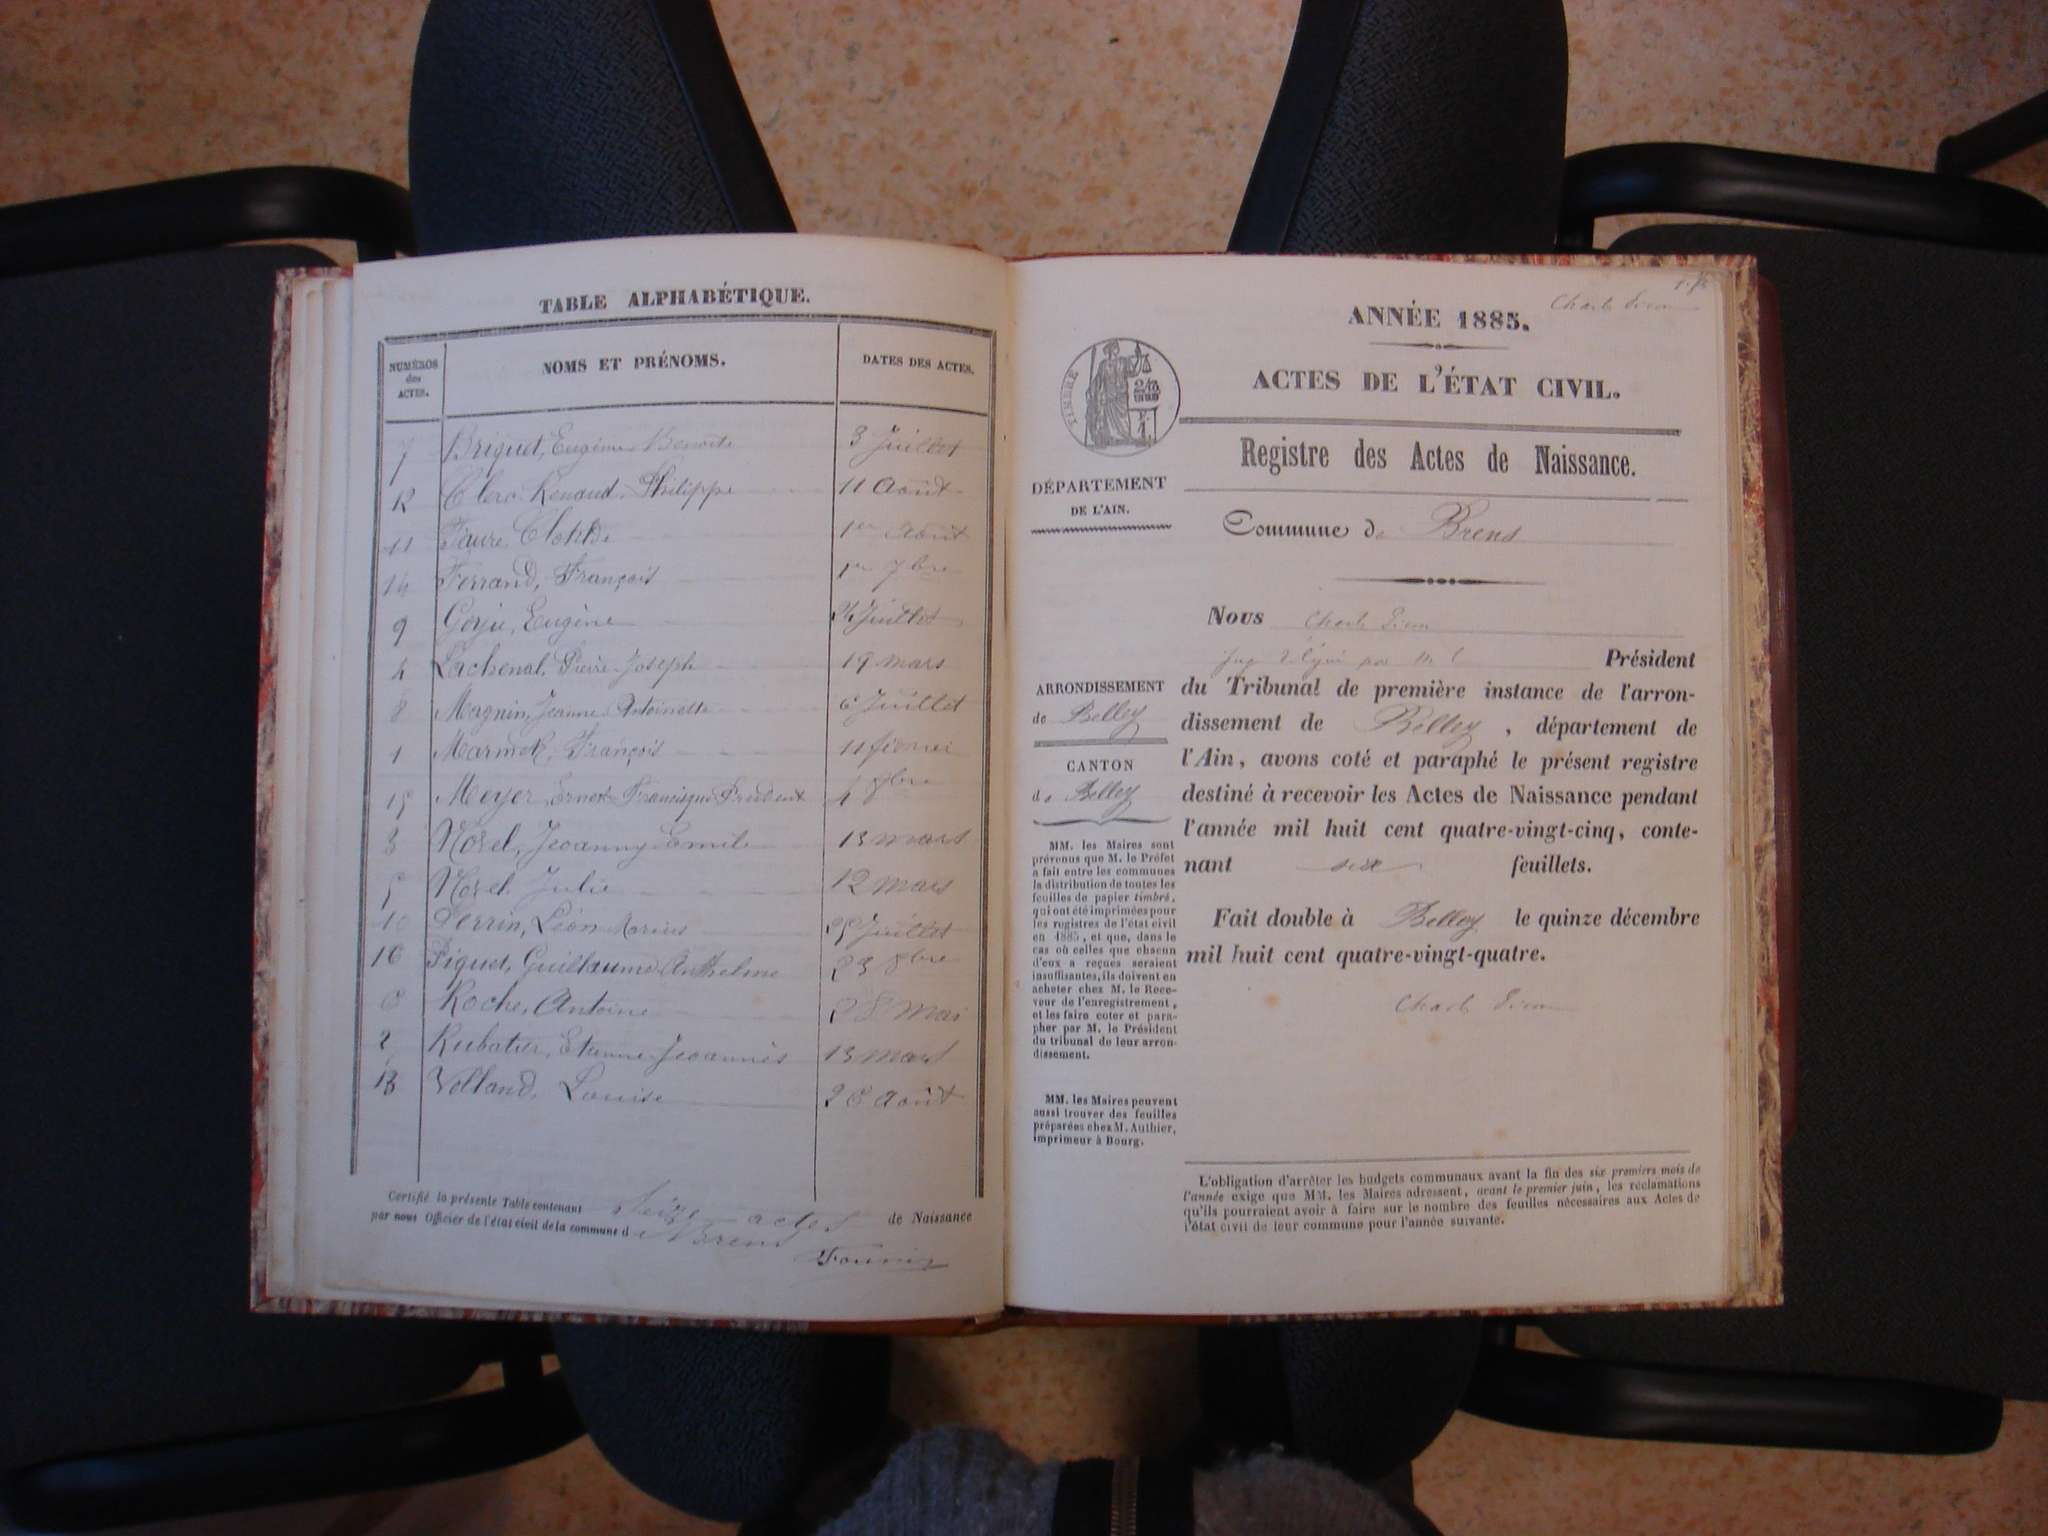 TABLE ALPHABÉTIQUE.
NUMÉROS
des
ACTES.
NOMS ET PRÉNOMS.
DATES DES ACTES.
7 Briguet, Eugénie Benoite 3 Juillet
12 Clerc-Renaud, Philippe 11 Août
11 Faure, Clotilde 1er Août
14 Ferrand, François 1er 7bre
9 Eugène Juillet
4 Lachenal, Pierre-Joseph 19 mars
8 Magnin, Jeanne-Antoinette 6 Juillet
1 François 11
15 Meyer, Ernest Francisque Prudent 4 8bre
3 Morel, Joanny Emile 13 mars
5 Morel Julie 12 mars
10 Perrin, Léon Marius Juillet
16 Piguet, Guillaume Anthelme 23 8bre
6 Roche, Antoine 28 Mai
2 Rubatier, Etienne-Joannès 13 mars
13 Volland, Louise 26 Août
Certifié la présente Table contenant Seize actes de Naissance
par nous Officier de l'état civil de la commune de Brens
ANNÉE 1885.
ACTES DE L'ÉTAT CIVIL.
TIMBRE
Registre des Actes de Naissance.
DÉPARTEMENT
DE L'AIN.
Commune de Brens
Nous
Président
du Tribunal de première instance de l'arron-
dissement de Belley, département de
l'Ain, avons coté et paraphé le présent registre
destiné à recevoir les Actes de Naissance pendant
l'année mil huit cent quatre-vingt-cinq, conte-
nant six feuillets.
Fait double à Belley le quinze décembre
mil huit cent quatre-vingt-quatre.
ARRONDISSEMENT
de Belley
CANTON
de Belley
MM. les Maires sont
prévenus que M. le Préfet
a fait entre les communes
la distribution de toutes les
feuilles de papier timbré,
qui ont été imprimées pour
les registres de l'état civil
en 1885, et que, dans le
cas où celles que chacun
d'eux a reçues seraient
insuffisantes, ils doivent en
acheter chez M. le Rece-
veur de l'enregistrement,
et les faire coter et para-
pher par M. le Président
du tribunal de leur arron-
dissement.
MM. les Maires peuvent
aussi trouver des feuilles
préparées chez M. Authier,
imprimeur à Bourg.
L'obligation d'arrêter les budgets communaux avant la fin des six premiers mois de
l'année exige que MM. les Maires adressent, avant le premier juin, les réclamations
qu'ils pourraient avoir à faire sur le nombre des feuilles nécessaires aux Actes de
l'état civil de leur commune pour l'année suivante.